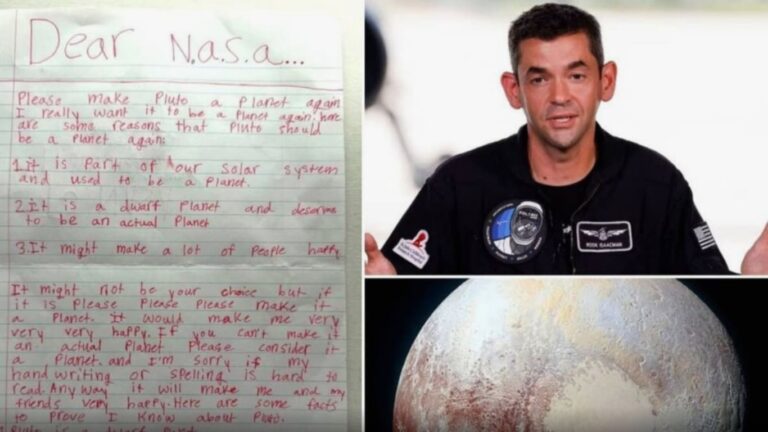 Dear N.a.s.a...
Please make Pluto a Planet again
I really want it to be a Planet again. here
are some reasons that Pluto should
be a Planet again:
1.it is Part of our solar system
and used to be a Planet.
2.It is a dwarf Planet and
to be an actual Planet
3.It might make a lot of People happy
It might not be your choice but if
it is Please Please Please make it
a Planet. It would make me very
very very happy. If you can't make it
an actual Planet Please consider it
a Planet. and I'm sorry if my
hand writing or spelling is hard to
read. Any way it will make me and my
friends very happy. Here are some facts
to Prove I Know about Pluto.